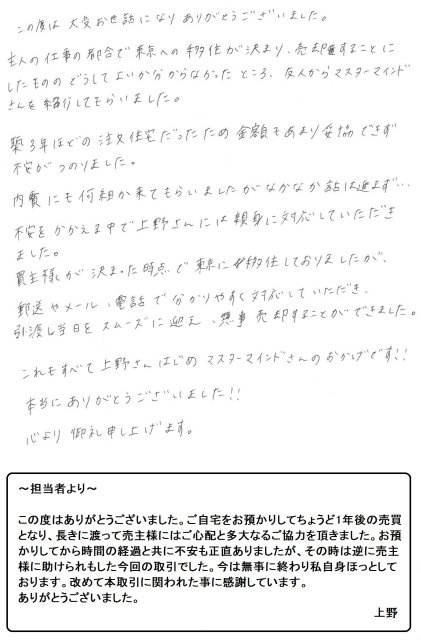 この度は 大変お世話になり ありがとうございました。
主人の仕事の都合で東京への移住が決まり、売却することに
したものの どうしてよいか分からなかった ところ、友人からマスターマインド
さんを紹介してもらいました。
築3年ほどの注文住宅だったため 金額もあまり妥協できず
不安がつのりました。
内覧にも何組か来てもらいましたがなかなか話は進まず…
不安をかかえる中で上野さんには親身に対応していただき
ました。
買主様が決まった時点で東京に移住しておりましたが、
郵送やメール、電話で分かりやすく対応していただき、
引渡し当日をスムーズに迎え、無事売却することができました。
これもすべて上野さんはじめ マスターマインドさんのおかげです!!
本当にありがとうございました!!
心より御礼申し上げます。
～担当者より～
この度はありがとうございました。ご自宅をお預かりしてちょうど1年後の売買
となり、長きに渡って売主様にはご心配と多大なるご協力を頂きました。お預
かりしてから時間の経過と共に不安も正直ありましたが、その時は逆に売主
様に助けられもした今回の取引でした。今は無事に終わり私自身ほっとして
おります。改めて本取引に関われた事に感謝しています。
ありがとうございました。
上野